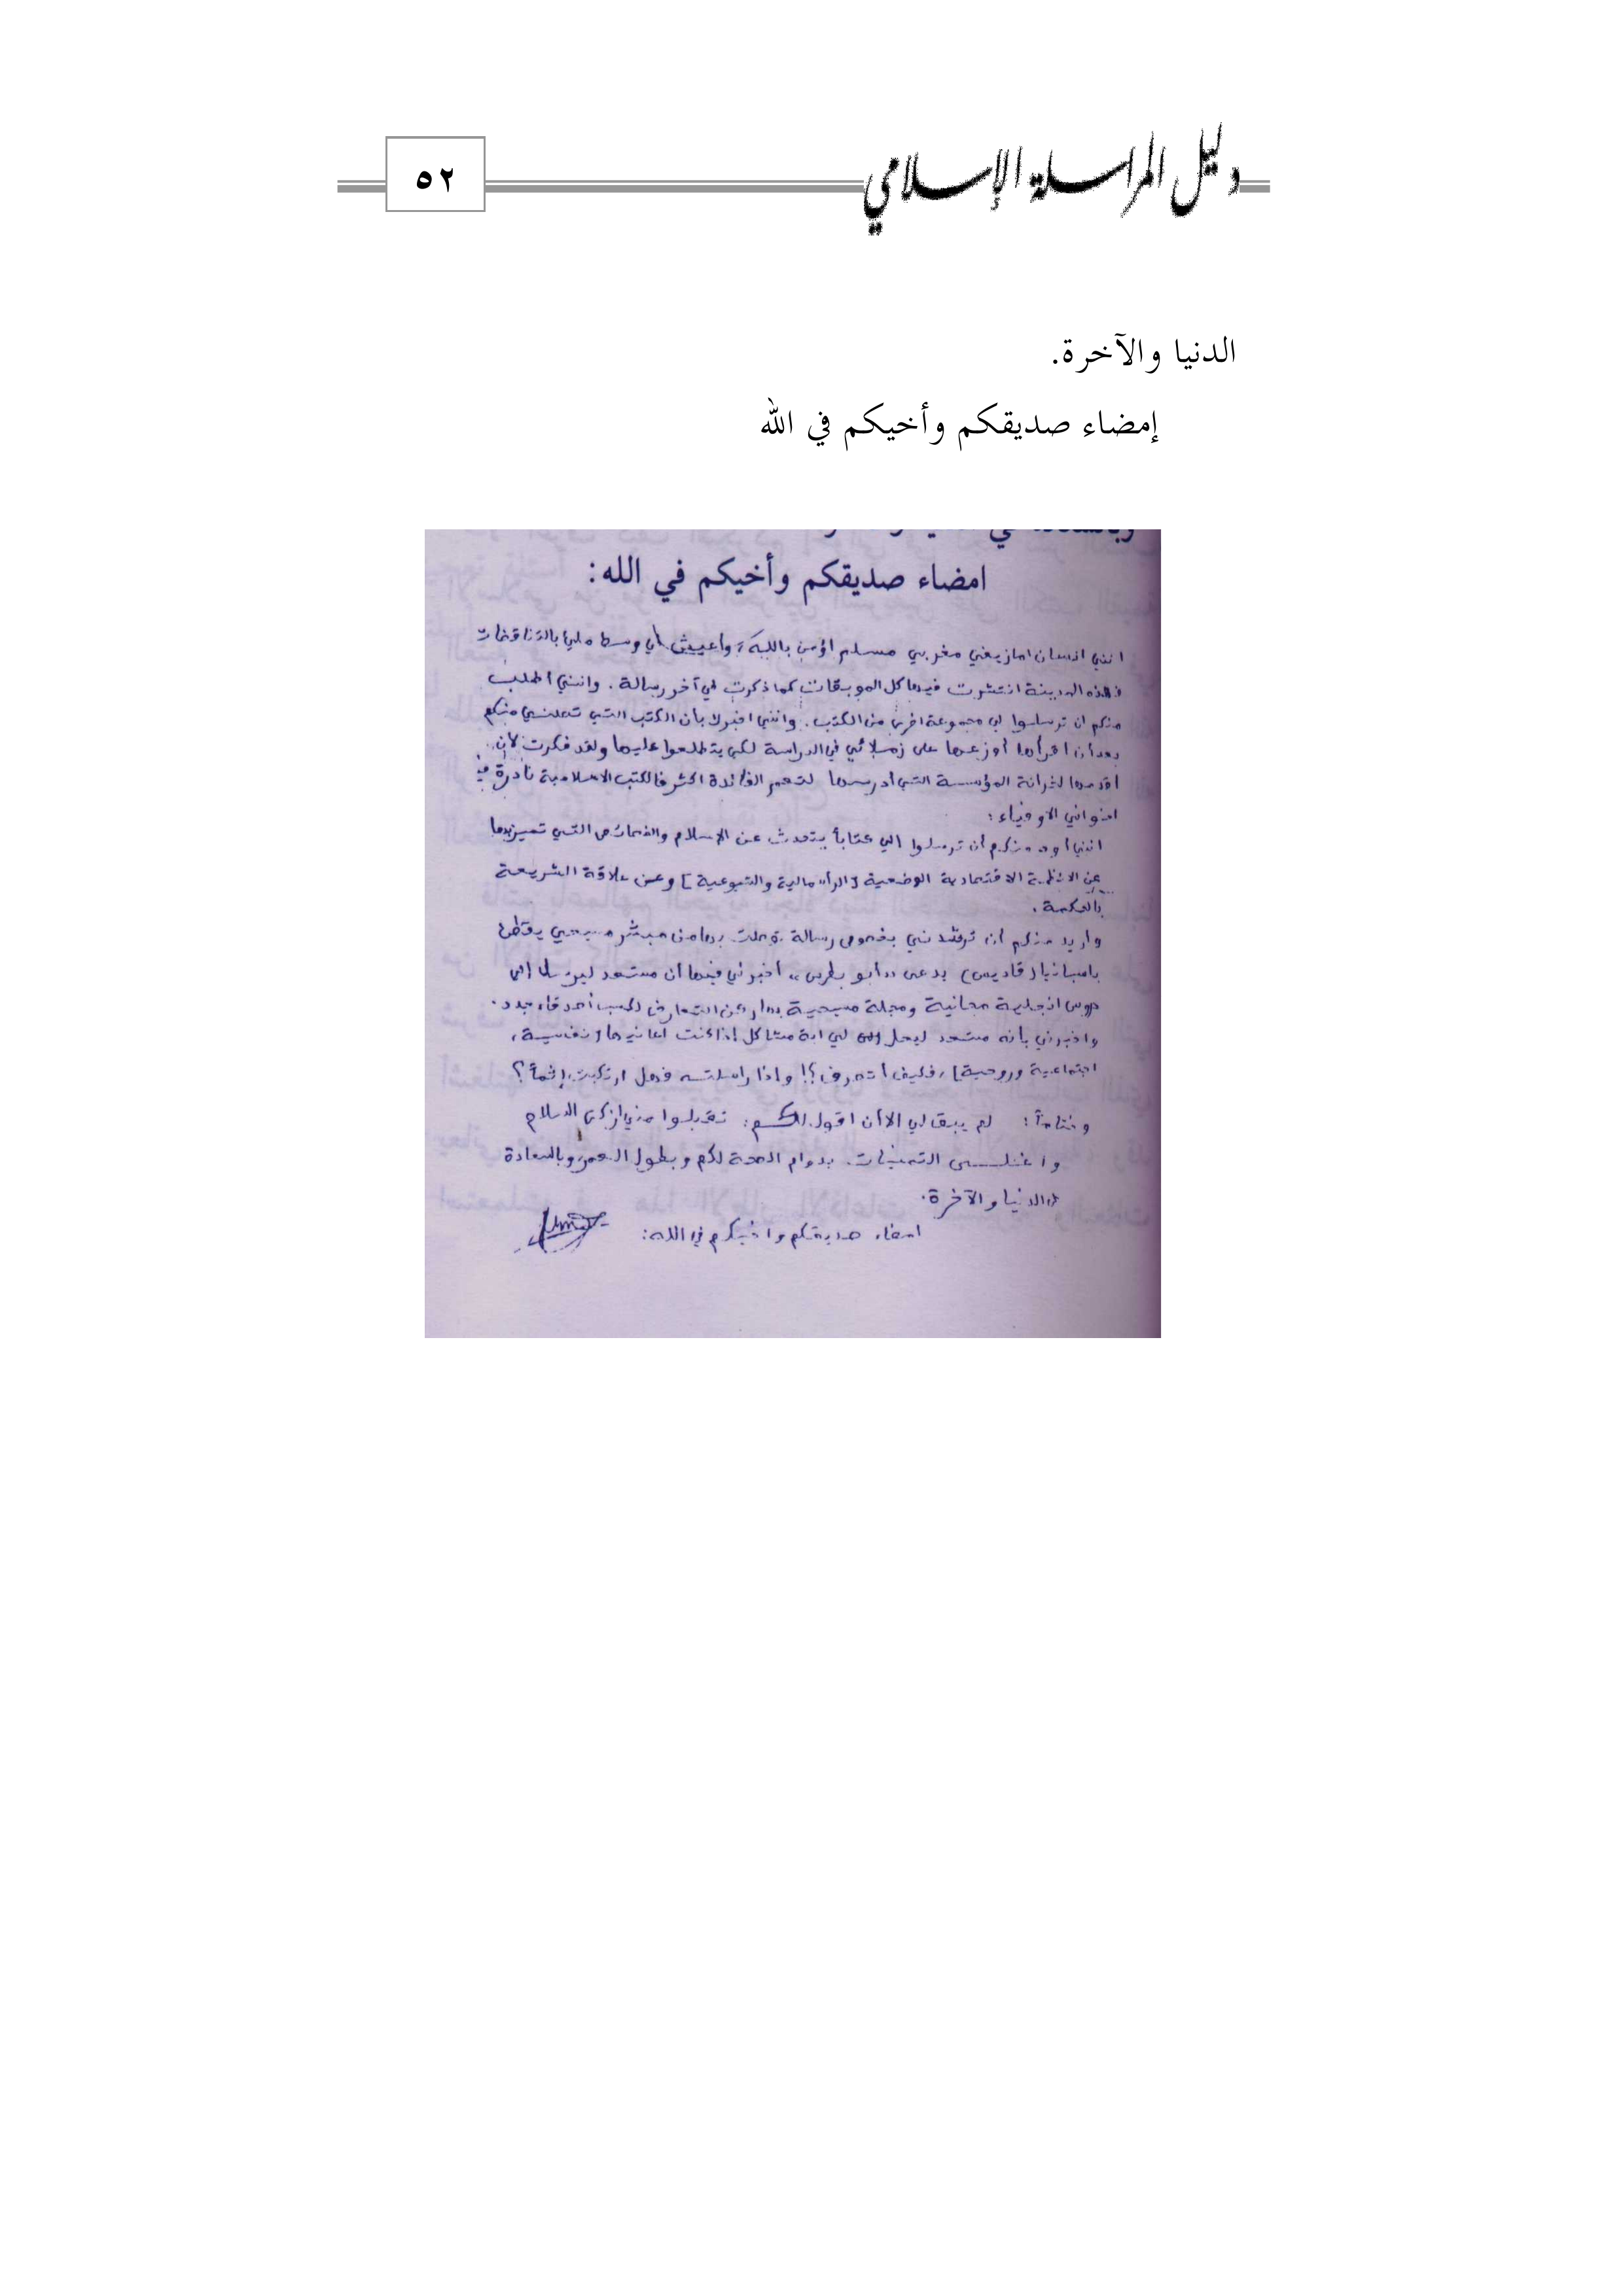 دليل المراسلة الإسلامي
٥٢
الدنيا والآخرة.
إمضاء صديقكم وأخيكم في الله
امضاء صديقكم وأخيكم في الله:
انني انسان امازيغي مغربي مسلم اؤمن بالله، واعيش في وسط مليئ بالتناقضات
فهذه المدينة انتشرت فيها كل الموبقات كما ذكرت في آخر رسالة. وانني اطلب
منكم ان ترسلوا لي مجموعة اخرى من الكتب. وانني اخبركم بأن الكتب التي تصلني منكم
بعد أن اقرأها أوزعها على زملائي في الدراسة لكي يتطلعوا عليها ولقد فكرت لأن
اقدمها لخزانة المؤسسة التي أدرس بها لتعم الفائدة اكثر فالكتب الاسلامية نادرة
اخواني الاوفياء:
انني أود منكم أن ترسلوا الي كتاباً يتحدث عن الإسلام والخصائص التي تميز بها
عن الانظمة الاقتصادية الوضعية [الرأسمالية والشيوعية] وعن علاقة الشريعة
بالحكمة.
واريد منكم ان ترشدني بخصوص رسالة توصلت بها من مبشر مسيحي يقطن
باسبانيا (قاديس) يدعى "أبو بطرس"، أخبرني فيها أن مستعد ليرسل إلى
دروس انجليية مجانية ومجلة مسيحية التعارف لكسب أصدقاء جدد.
واخبرني بأنه مستعد ليحل لي اية مشاكل إذا كنت اعانيها [نفسية،
اجتماعية وروحية]، فكيف أتصرف؟! واذا راسلته فهل ارتكبت إثماً؟
وختاماً: لم يبق لي الا أن اقول لكم: تقبلوا مني ازكى السلام
واغلى التمنيات. بدوام الصحة لكم وبطول العمر وبالسعادة
في الدنيا والآخرة.
امضاء صديقكم واخيكم في الله: